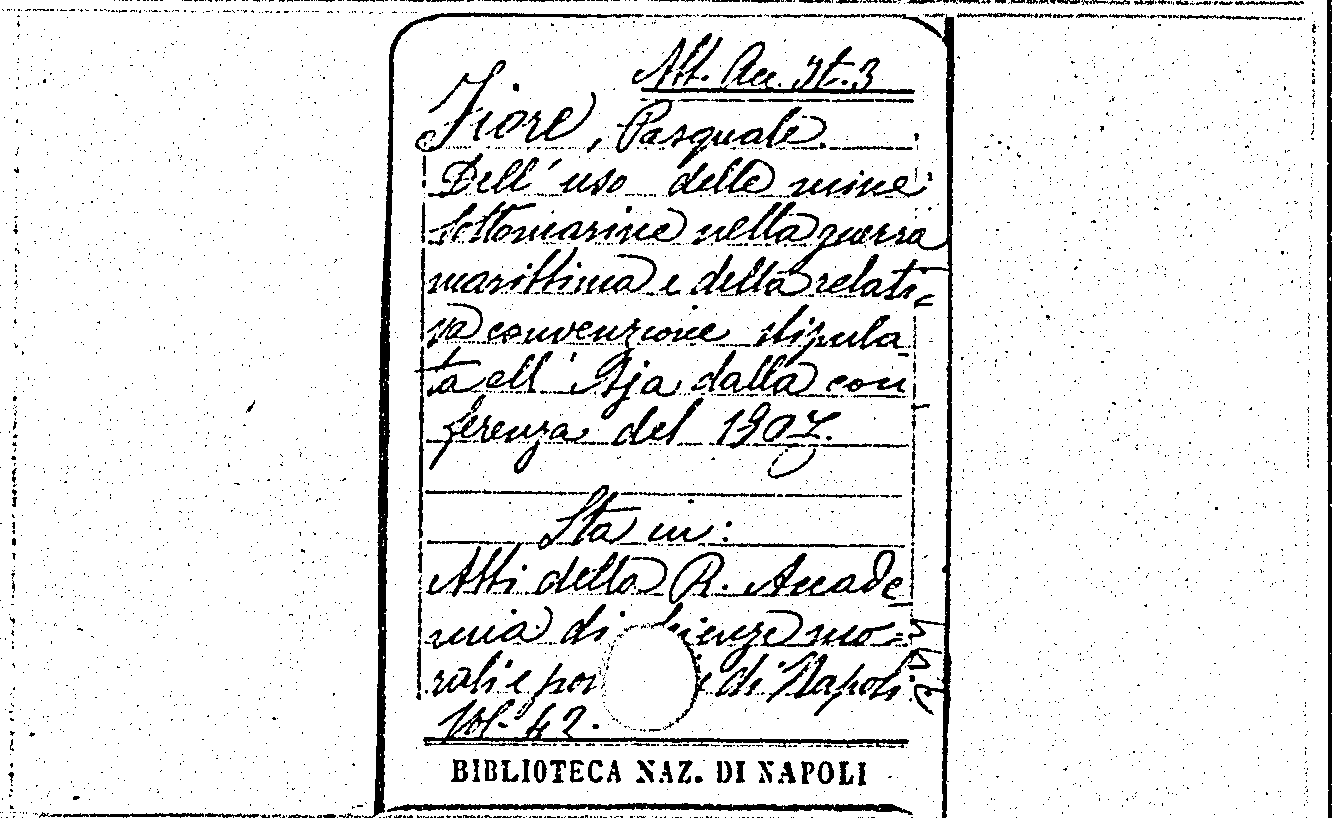 Att. Acc. It. 3
Fiore, Pasquale.
Dell' uso delle mine
sottomarine nella guerra
marittima e della relati-
va convenzione stipula
ta all' Aja dalla con
ferenza del 1907.
Sta in:
Atti della R. Accade
mia di mo-
rali e di Napoli.
Vol. 42.
BIBLIOTECA NAZ. DI NAPOLI